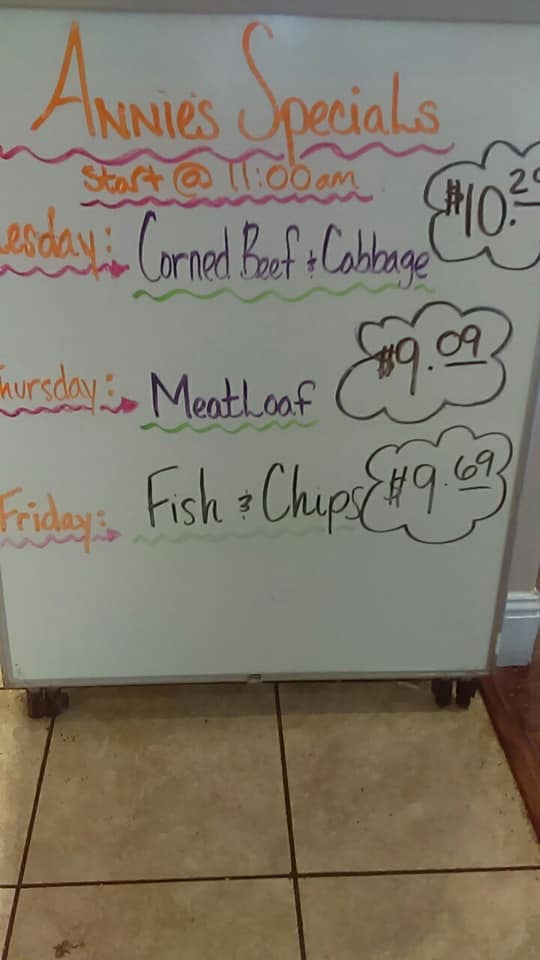 ANNIE'S SpeciaLs
Start @ 11:00am
esday: Corned Beef & Cabbage $10.
hursday: MeatLoaf $9.09
Friday: Fish & Chips $9.69